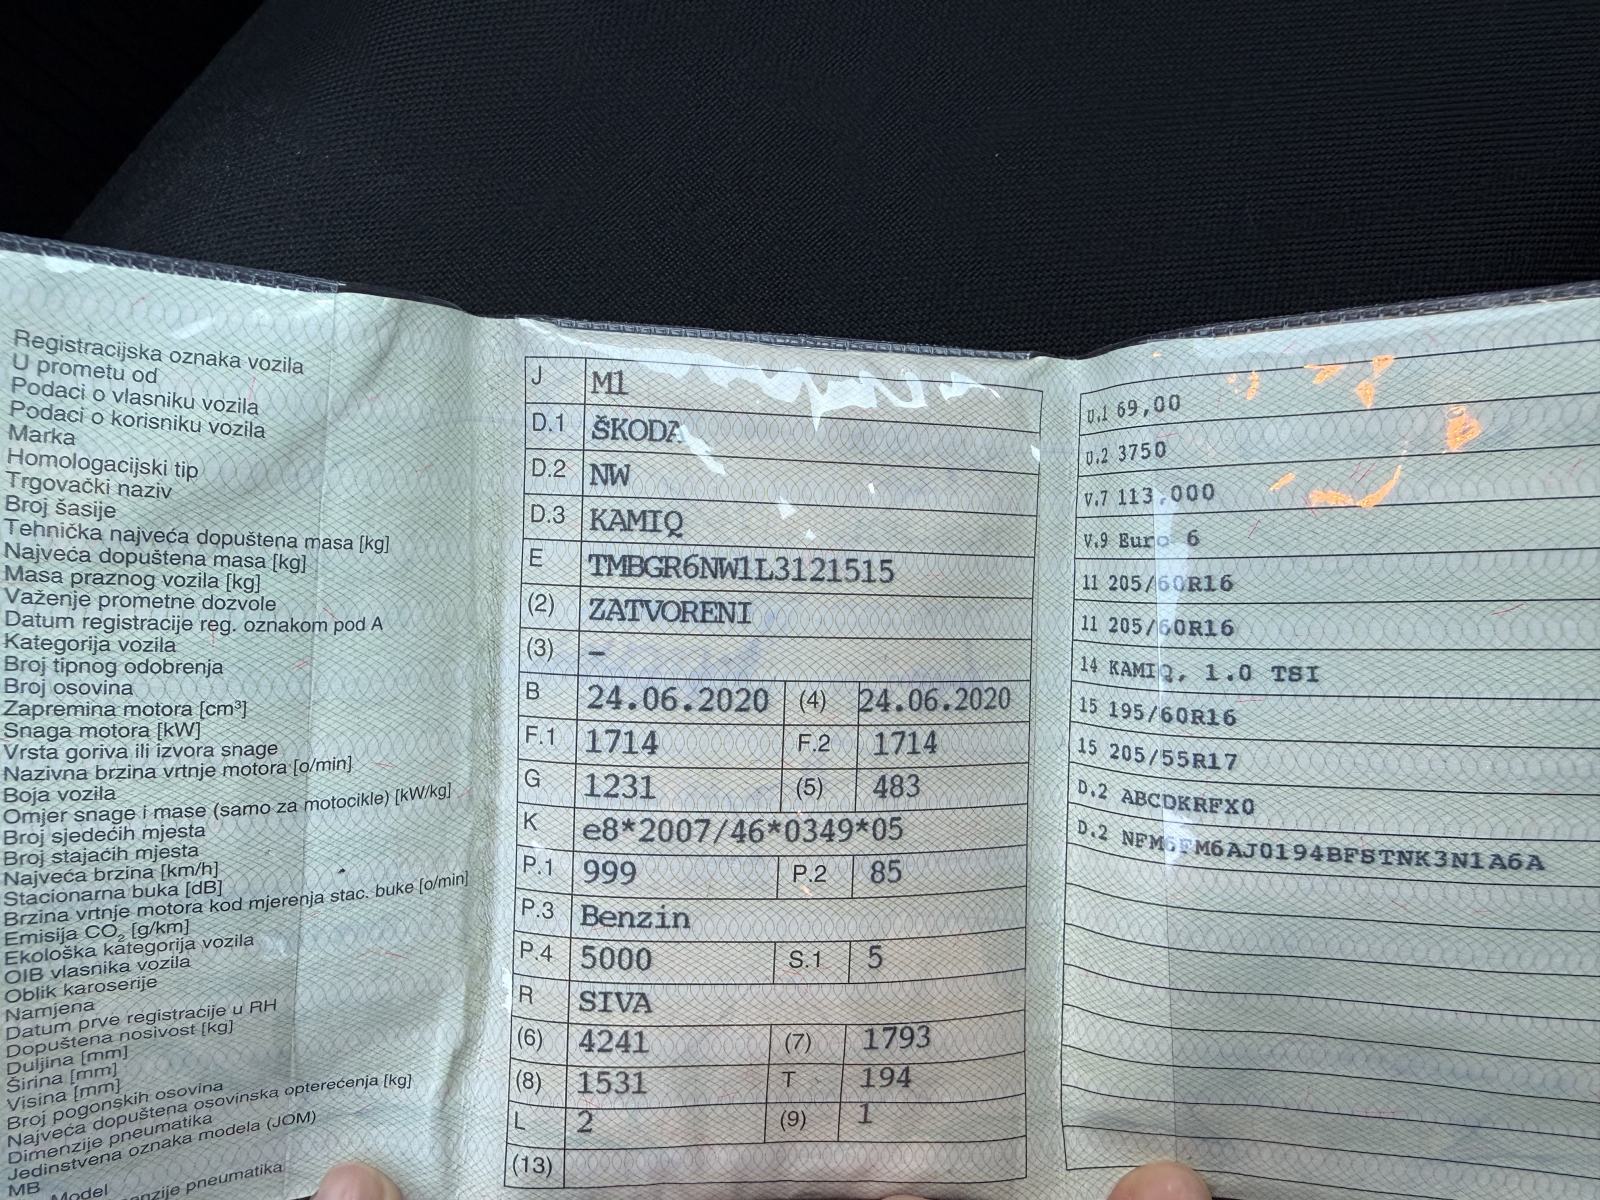 Registracijska oznaka vozila
U prometu od
Podaci o vlasniku vozila
Podaci o korisniku vozila
Marka
Homologacijski tip
Trgovački naziv
Broj šasije
Tehnička najveća dopuštena masa [kg]
Najveća dopuštena masa [kg]
Masa praznog vozila [kg]
Važenje prometne dozvole
Datum registracije reg. oznakom pod A
Kategorija vozila
Broj tipnog odobrenja
Broj osovina
Zapremina motora [cm³]
Snaga motora [kW]
Vrsta goriva ili izvora snage
Nazivna brzina vrtnje motora [o/min]
Boja vozila
Omjer snage i mase (samo za motocikle) [kW/kg]
Broj sjedećih mjesta
Broj stajaćih mjesta
Najveća brzina [km/h]
Stacionarna buka [dB]
Brzina vrtnje motora kod mjerenja stac. buke [o/min]
Emisija CO₂ [g/km]
Ekološka kategorija vozila
OIB vlasnika vozila
Oblik karoserije
Namjena
Datum prve registracije u RH
Dopuštena nosivost [kg]
Duljina [mm]
Širina [mm]
Visina [mm]
Broj pogonskih osovina
Najveća dopuštena osovinska opterećenja [kg]
Dimenzije pneumatika
Jedinstvena oznaka modela (JOM)
MB
Model
pneumatika
J M1
D.1 ŠKODA
D.2 NW
D.3 KAMIQ
E TMBGR6NW1L3121515
(2) ZATVORENI
(3) –
B 24.06.2020 (4) 24.06.2020
F.1 1714 F.2 1714
G 1231 (5) 483
K e8*2007/46*0349*05
P.1 999 P.2 85
P.3 Benzin
P.4 5000 S.1 5
R SIVA
(6) 4241 (7) 1793
(8) 1531 T 194
L 2 (9) 1
(13)
U.1 69,00
U.2 3750
V.7 113,000
V.9 Euro 6
11 205/60R16
11 205/60R16
14 KAMIQ, 1.0 TSI
15 195/60R16
15 205/55R17
D.2 ABCDKRFX0
D.2 NFM6FM6AJ0194BFSTNK3N1A6A